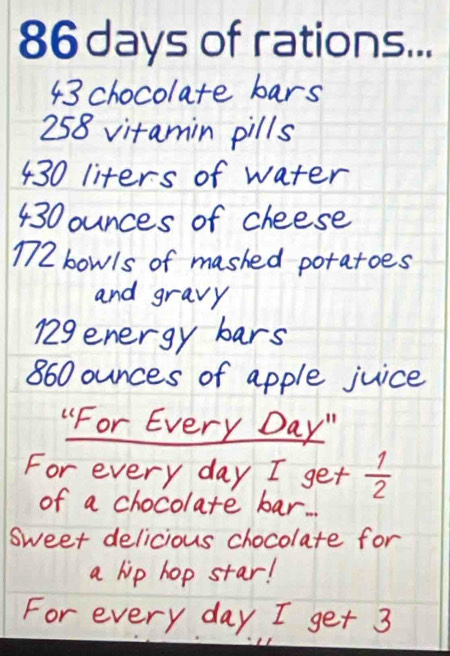 86 days of rations...
43 chocolate bars
258 vitamin pills
430 liters of water
430 ounces of cheese
172 bowls of mashed potatoes
and gravy
129 energy bars
860 ounces of apple juice
"For Every Day"
For every day I get 1/2
of a chocolate bar...
Sweet delicious chocolate for
a hip hop star!
For every day I get 3